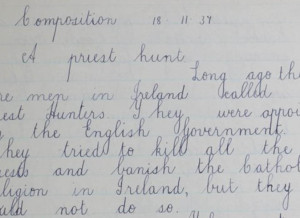 Composition 18-11-37
A priest hunt
Long ago
men in Ireland called
Hunters. They were
the English Government.
They tried to kill all the
and banish the
in Ireland, but they
not do so.